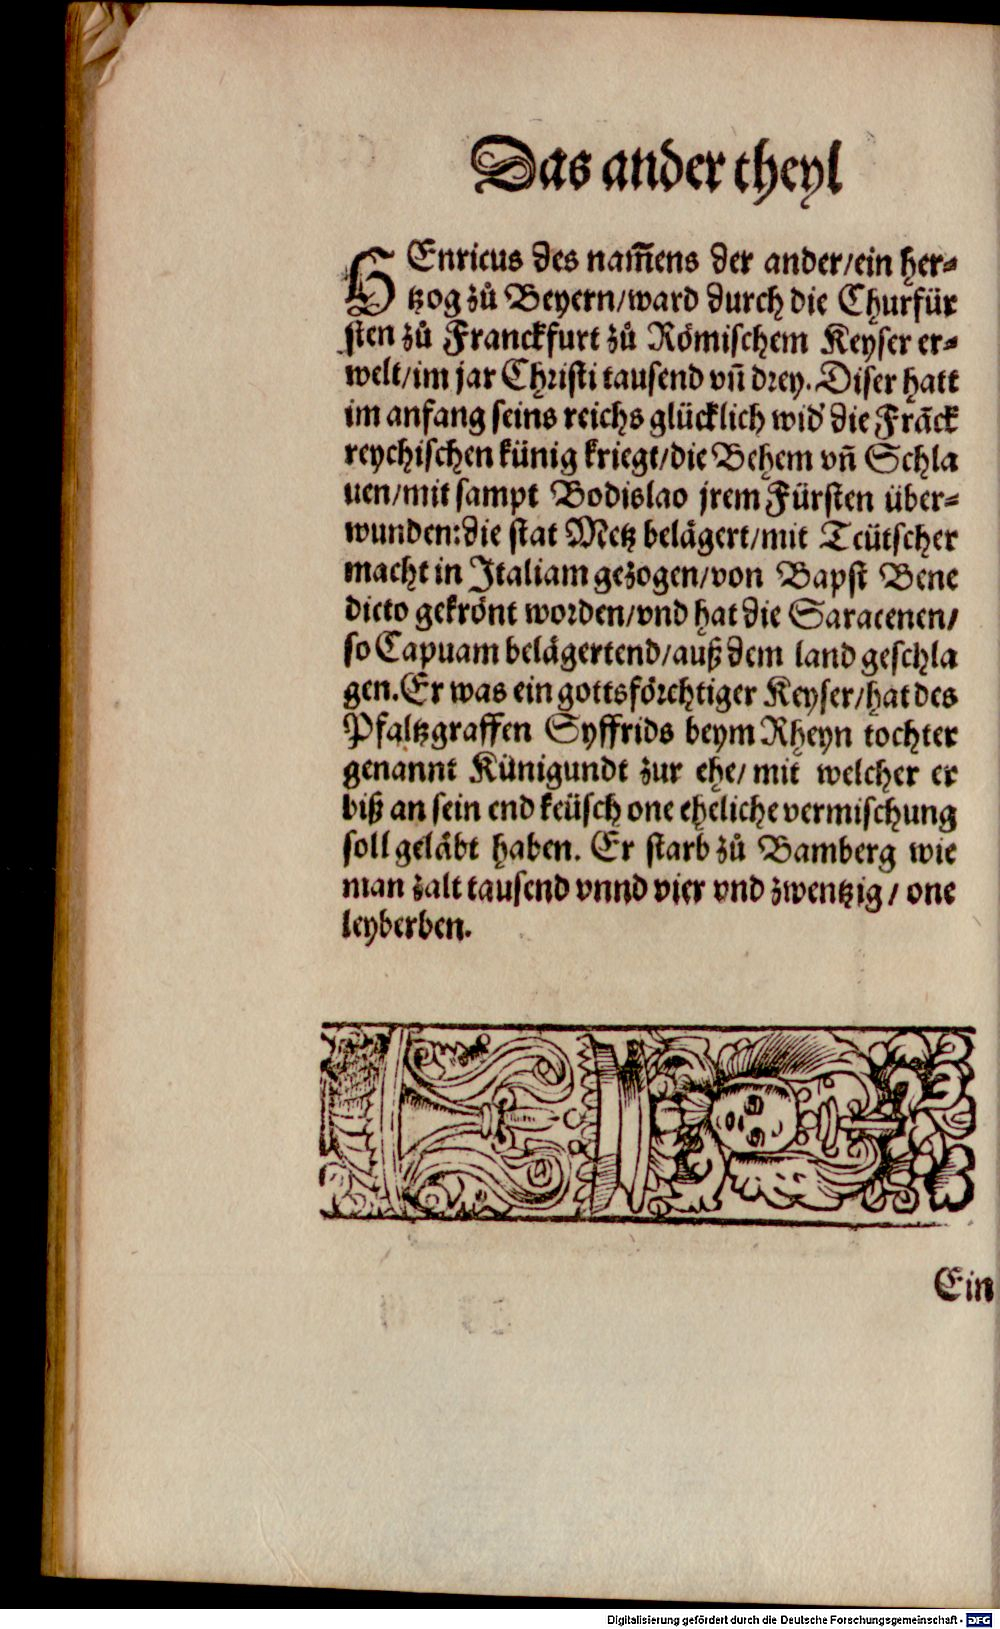 Das ander theyl
HEnricus des nam̄ens der ander/ein her⸗
tzog zů Beyern/ward durch die Churfür
sten zů Franckfurt zů Römischem Keyser er⸗
welt/im jar Christi tausend vn̄ drey. Diser hatt
im anfang seins reichs glücklich wid' die Frāck
reychischen künig kriegt/die Behem vn̄ Schla
uen/mit sampt Bodislao jrem Fürsten über⸗
wunden:die stat Metz belägert/mit Teütscher
macht in Italiam gezogen/von Bapst Bene
dicto gekrönt worden/vnd hat die Saracenen/
so Capuam belägertend/auß dem land geschla
gen.Er was ein gottsförchtiger Keyser/hat des
Pfaltzgraffen Syffrids beym Rheyn tochter
genannt Künigundt zur ehe/ mit welcher er
biß an sein end keüsch one eheliche vermischung
soll geläbt haben. Er starb zů Bamberg wie
man zalt tausend vnnd vier vnd zwentzig / one
leyberben.
Ein
Digitalisierung gefördert durch die Deutsche Forschungsgemeinschaft - DFG